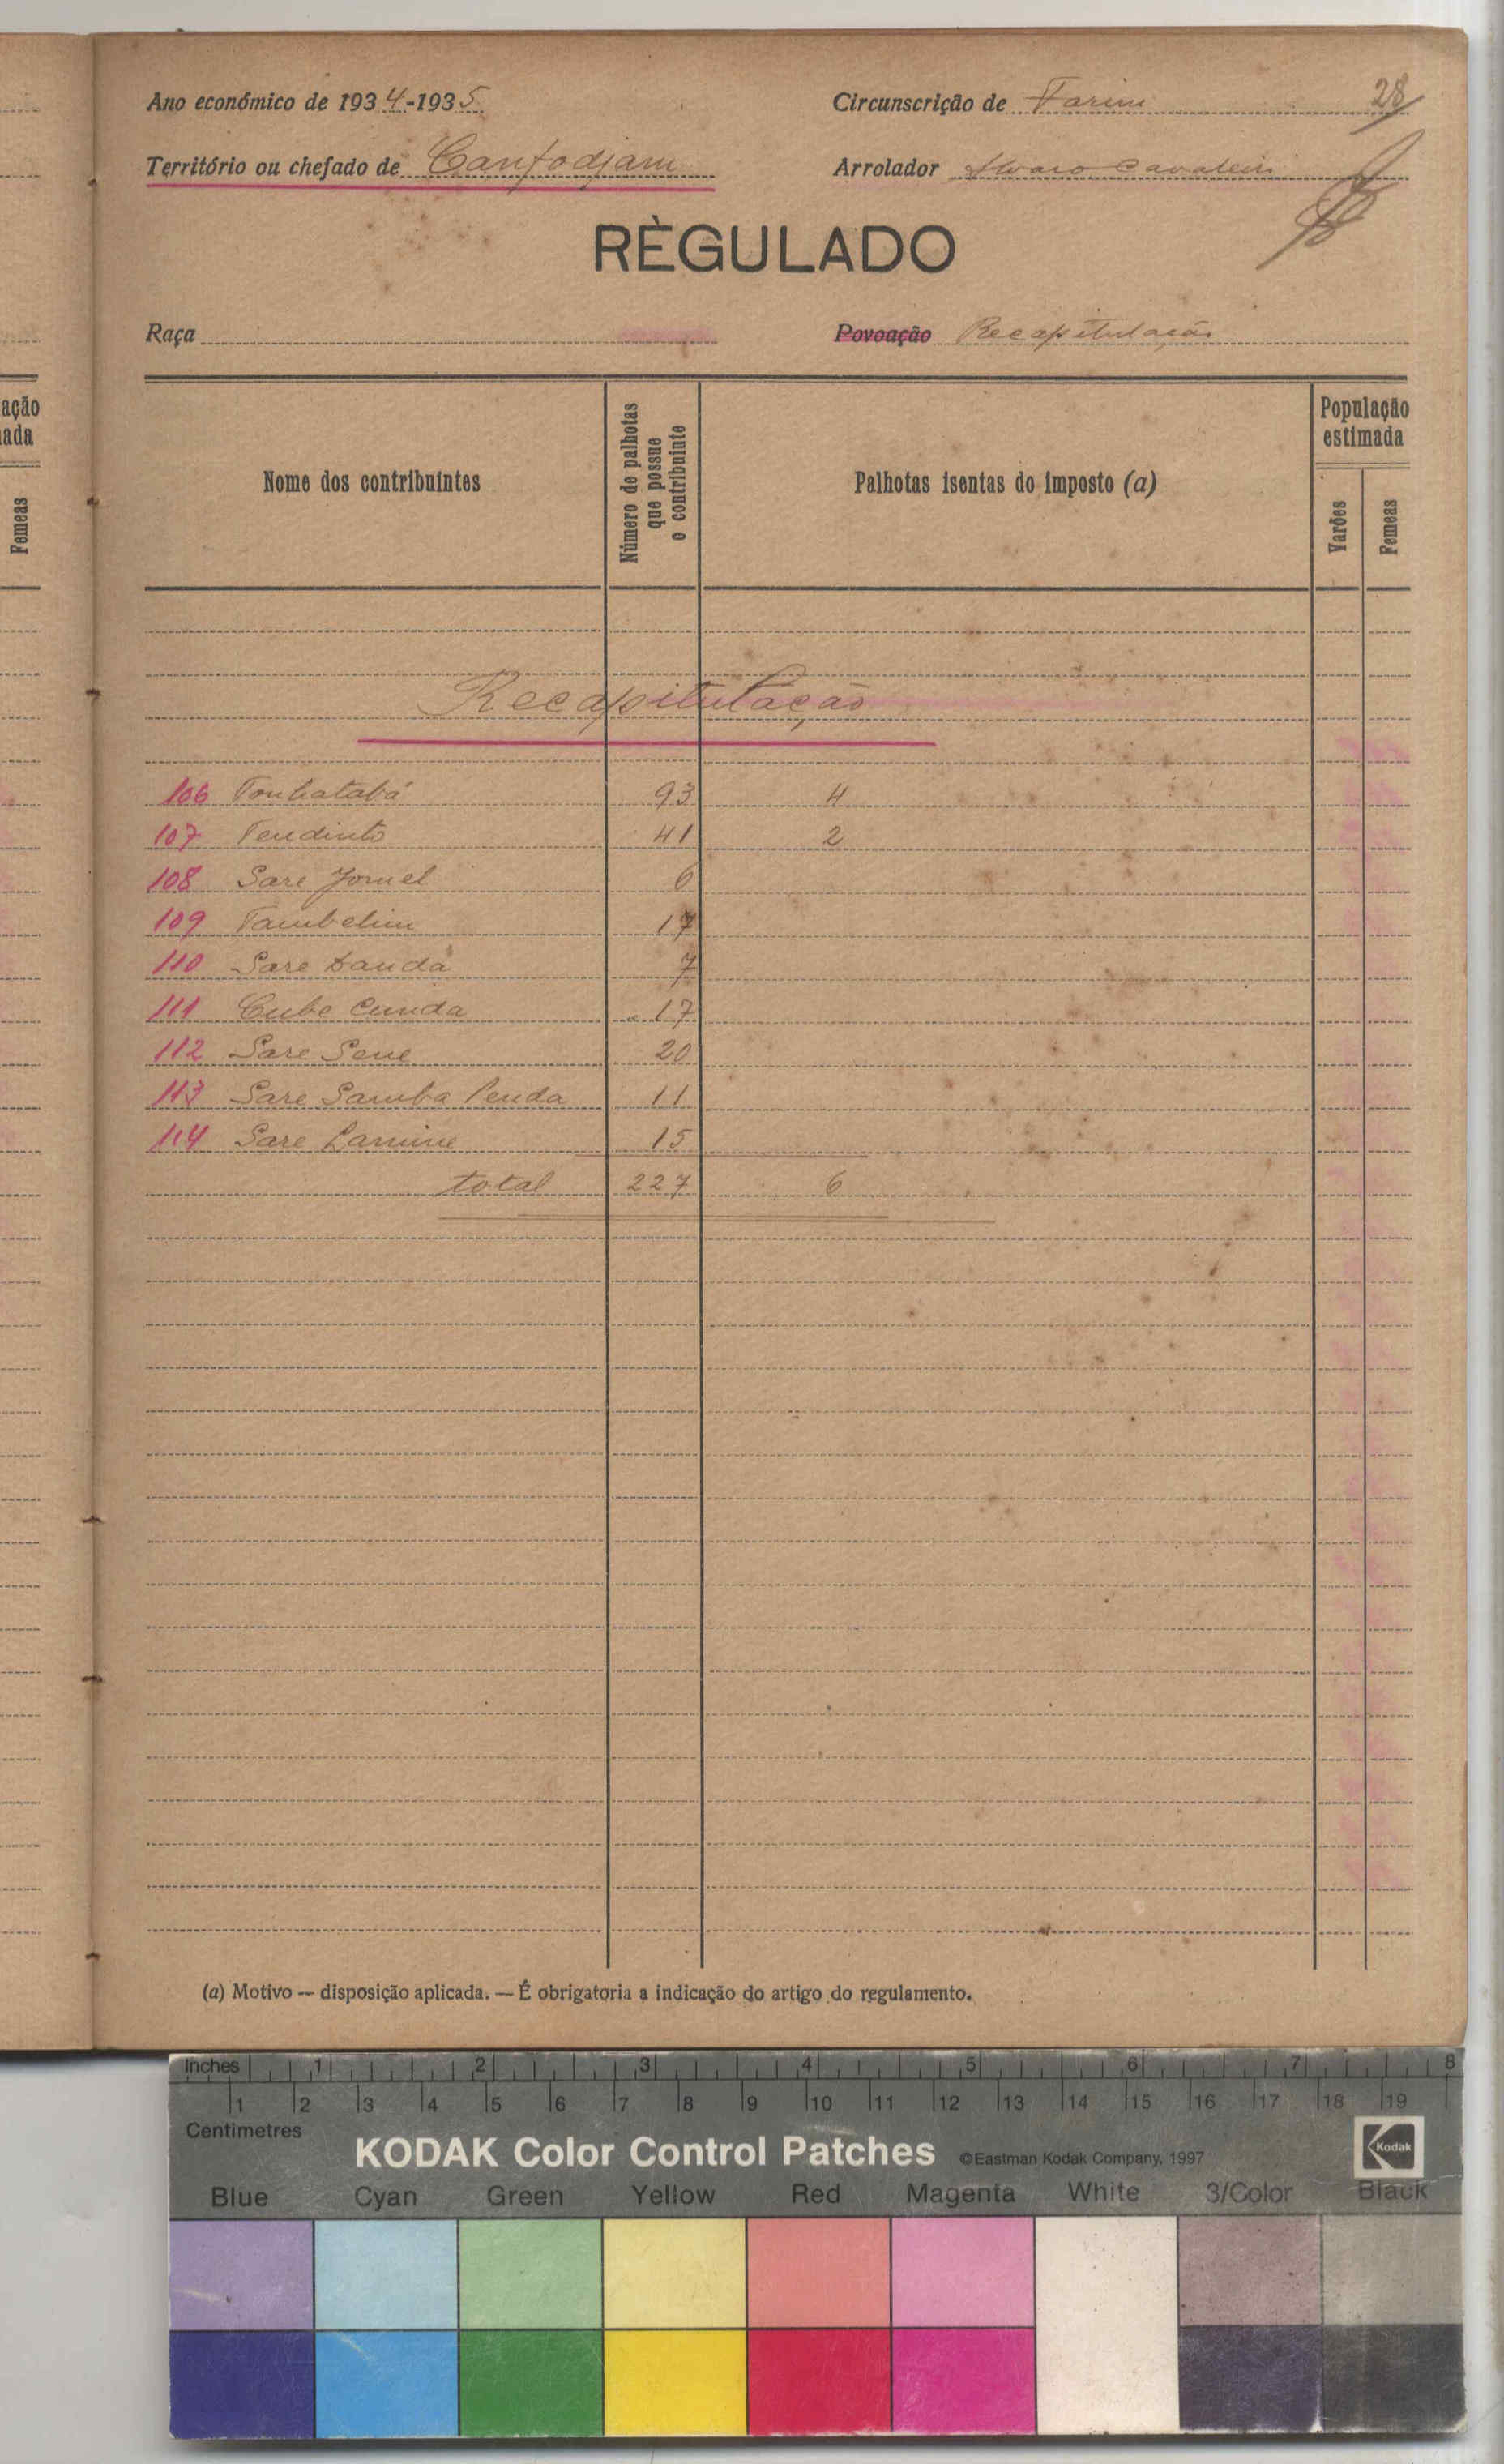 ação
ada
Femeas
Ano económico de 1934-1935
Circunscrição de Farim
28
Território ou chefado de Canfodjam
Arrolador Alvaro Cavaleiro
RÈGULADO
Raça
Povoação Recapitulação
Nome dos contribuintes
Número de palhotas
que possue
o contribuinte
Palhotas isentas do imposto (a)
População
estimada
Varões
Femeas
Recapitulação
106 93 4
107 Tendinto 41 2
108 Sare 6
109 Tambelim 17
110 Sare Danda 7
111 Cube Cunda 17
112 Sare Sene 20
113 Sare Samba Penda 11
114 Sare Lamine 15
total 227 6
(a) Motivo — disposição aplicada. — É obrigatoria a indicação do artigo do regulamento.
Inches 1 2 3 4 5 6 7 8
1 2 3 4 5 6 7 8 9 10 11 12 13 14 15 16 17 18 19
Centimetres
KODAK Color Control Patches ©Eastman Kodak Company, 1997 Kodak
Blue Cyan Green Yellow Red Magenta White 3/Color Black